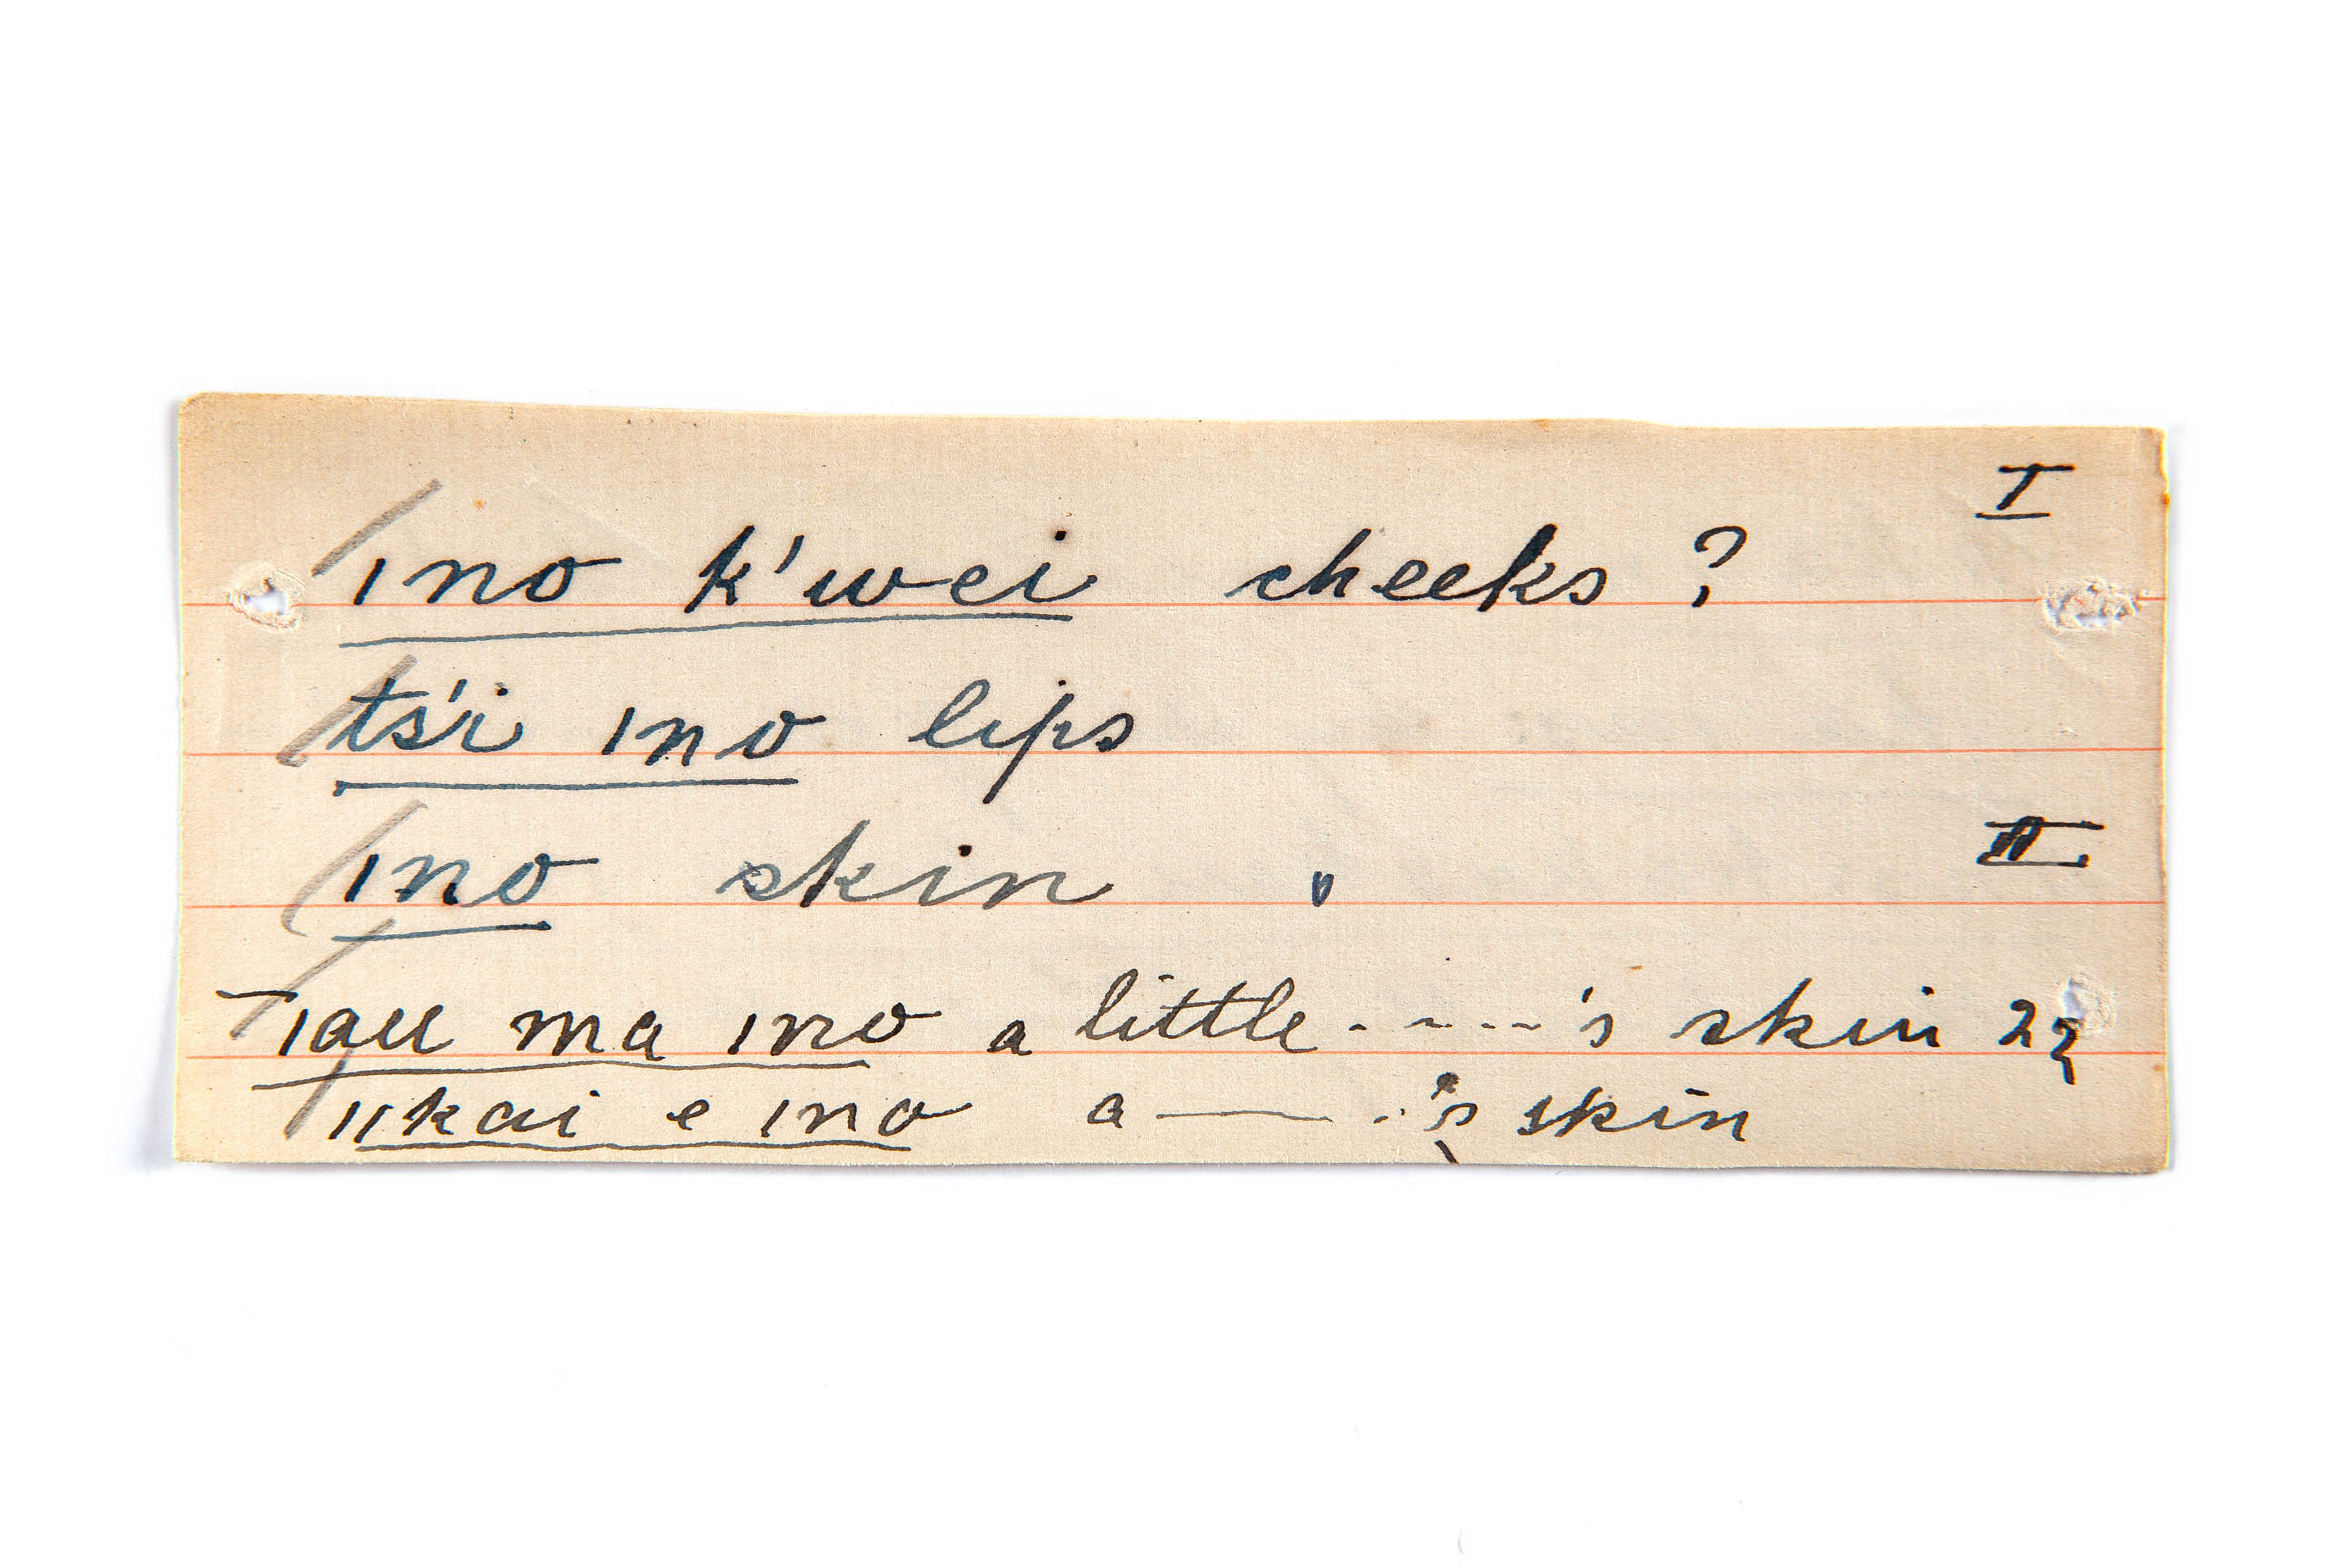 I
ıno k'wei cheeks ?
ts'i ıno lips
ıno skin II
ıau ma ıno a little ----'s skin 22
ııkai e ıno a —— 's skin